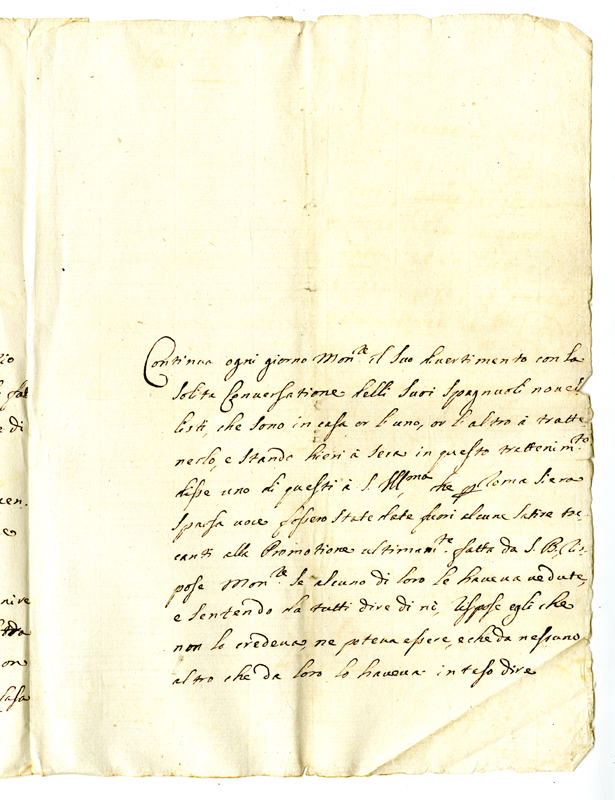 Continua ogni giorno Mon.re il suo divertimento con la
solita Conversatione delli suoi Spagnuoli novel
listi, che sono in casa or l'uno, or l'altro à tratte
nerlo, e stando hieri à sera in questo trattenim.to
disse uno di questi à S. Ill.ma che p Roma si era
sparsa voce fossero state date fuori alcune Satire toc
canti alla Promotione ultimam.te fatta da S. B. Ris-
pose Mon.re se alcuno di loro le haveva vedute,
e sentendo da tutti dire di nò, rispose egli che
non lo credeva, ne poteva essere, e che da nessuno
altro che da loro lo haveva inteso dire